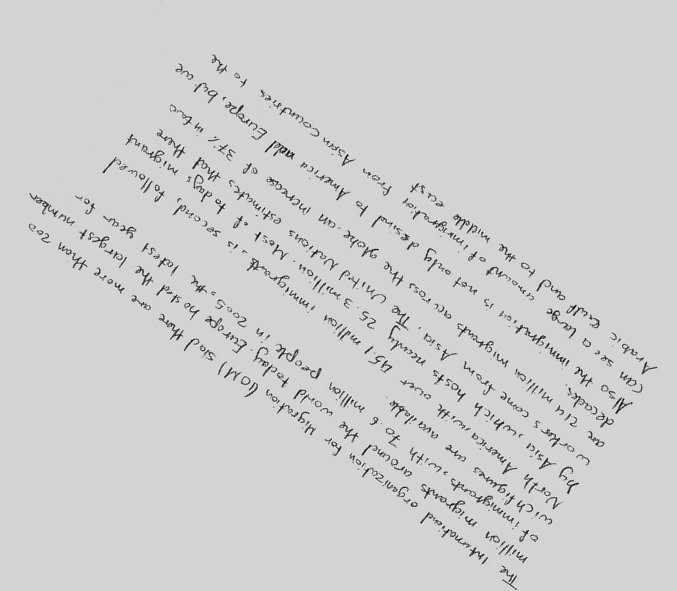 The International organization for Migration (IOM) siad there are more than 200
million migrants around the world today. Europe hosted the largest number
of immigrants, with 70.6 million people in 2005, the latest year for
wich figures are available.
North America, with over 45.1 million immigrants, is second, followed
by Asia, which hosts nearly 25.3 million. Most of todays migrant
workers come from Asia. The United Nations estimates that there
are 214 million migrants across the globe, an increase of 37% in two
decades.
Also the immigration is not only desind to America and Europe, but we
can see a large amount of immigration from Asian Countries to the
Arabic Gulf and to the middle east